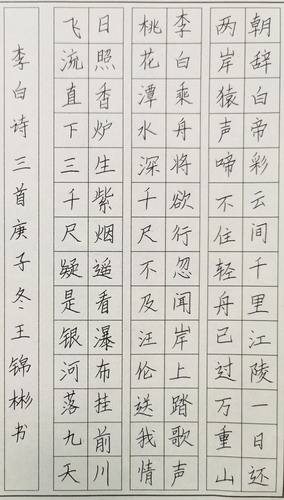 朝辞白帝彩云间千里江陵一日还
两岸猿声啼不住轻舟已过万重山
李白乘舟将欲行忽闻岸上踏歌声
桃花潭水深千尺不及汪伦送我情
日照香炉生紫烟遥看瀑布挂前川
飞流直下三千尺疑是银河落九天
李白诗三首庚子冬王锦彬书